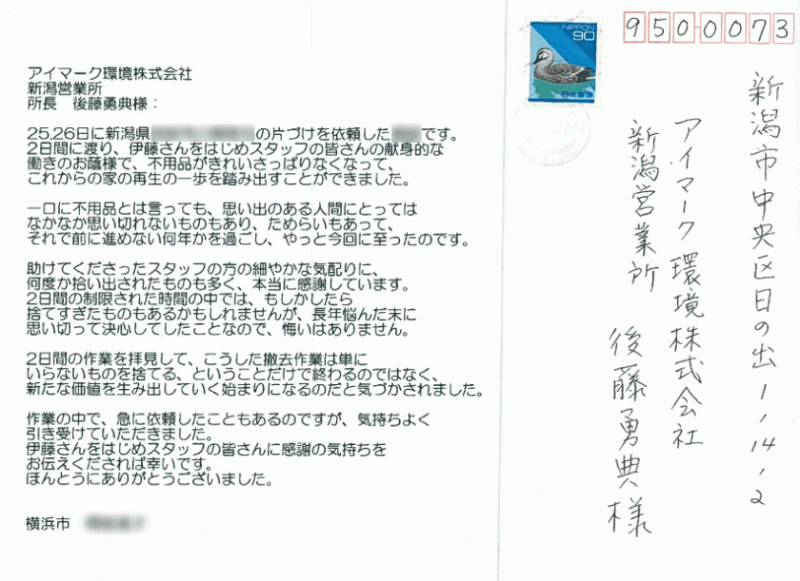 アイマーク環境株式会社
新潟営業所
所長　後藤勇典様：
25,26日に新潟県の片づけを依頼したです。
2日間に渡り、伊藤さんをはじめスタッフの皆さんの献身的な
働きのお蔭様で、不用品がきれいさっぱりなくなって、
これからの家の再生の一歩を踏み出すことができました。
一口に不用品とは言っても、思い出のある人間にとっては
なかなか思い切れないものもあり、ためらいもあって、
それで前に進めない何年かを過ごし、やっと今回に至ったのです。
助けてくださったスタッフの方の細やかな気配りに、
何度か拾い出されたものも多く、本当に感謝しています。
2日間の制限された時間の中では、もしかしたら
捨てすぎたものもあるかもしれませんが、長年悩んだ末に
思い切って決心してしたことなので、悔いはありません。
2日間の作業を拝見して、こうした撤去作業は単に
いらないものを捨てる、ということだけで終わるのではなく、
新たな価値を生み出していく始まりになるのだと気づかされました。
作業の中で、急に依頼したこともあるのですが、気持ちよく
引き受けていただきました。
伊藤さんをはじめスタッフの皆さんに感謝の気持ちを
お伝えくだされば幸いです。
ほんとうにありがとうございました。
横浜市
NIPPON
90
日本郵便
9500073
新潟市中央区日の出1,14,2
アイマーク環境株式会社
新潟営業所　後藤勇典様